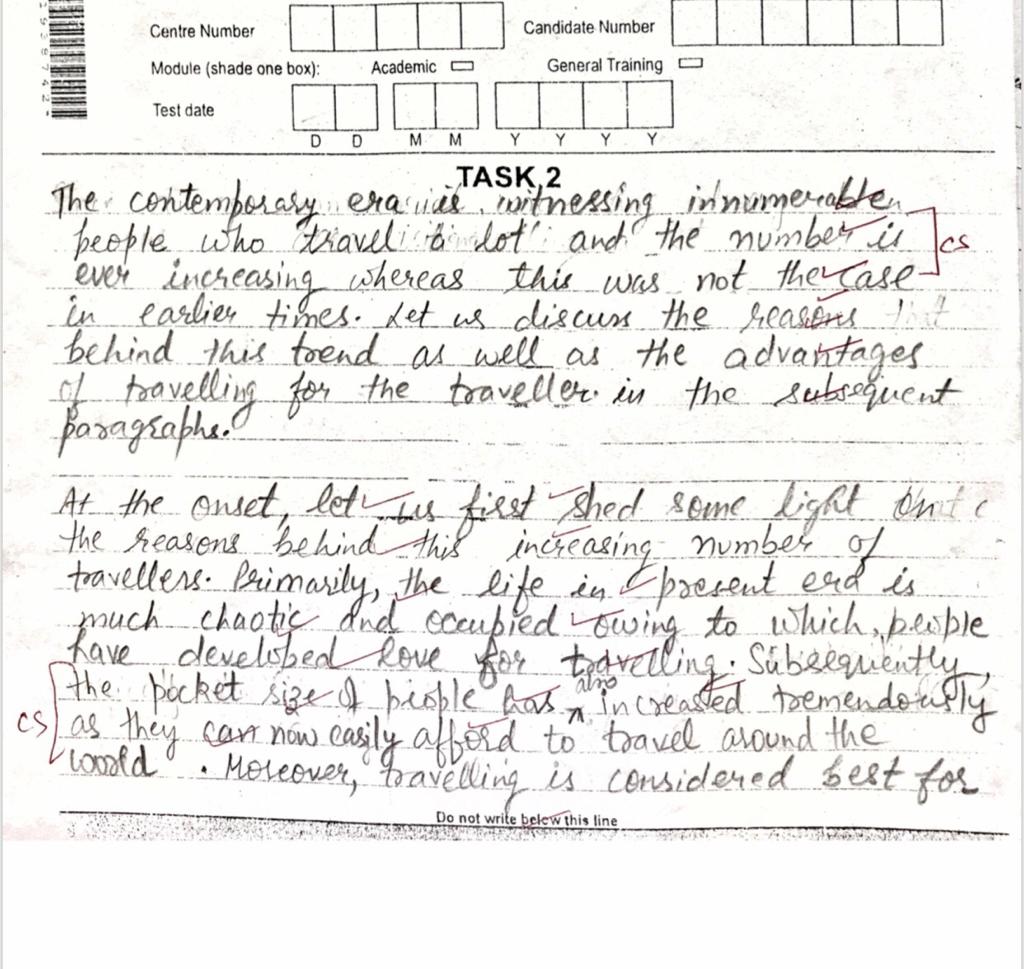 Centre Number Candidate Number
Module (shade one box): Academic General Training
Test date
D D M M Y Y Y Y
TASK 2
The contemporary era is witnessing innumerable
people who travel a lot and the number is
cs
ever increasing whereas this was not the case
in earlier times. Let us discuss the reasons
behind this trend as well as the advantages
of travelling for the traveller in the subsequent
paragraphs.
At the onset, let us first shed some light on
the reasons behind this increasing number of
travellers. Primarily, the life in present era is
much chaotic and occupied owing to which, people
have developed love for travelling. Subsequently,
the pocket size of people has also increased tremendously
cs
as they can now easily afford to travel around the
world. Moreover, travelling is considered best for
Do not write below this line